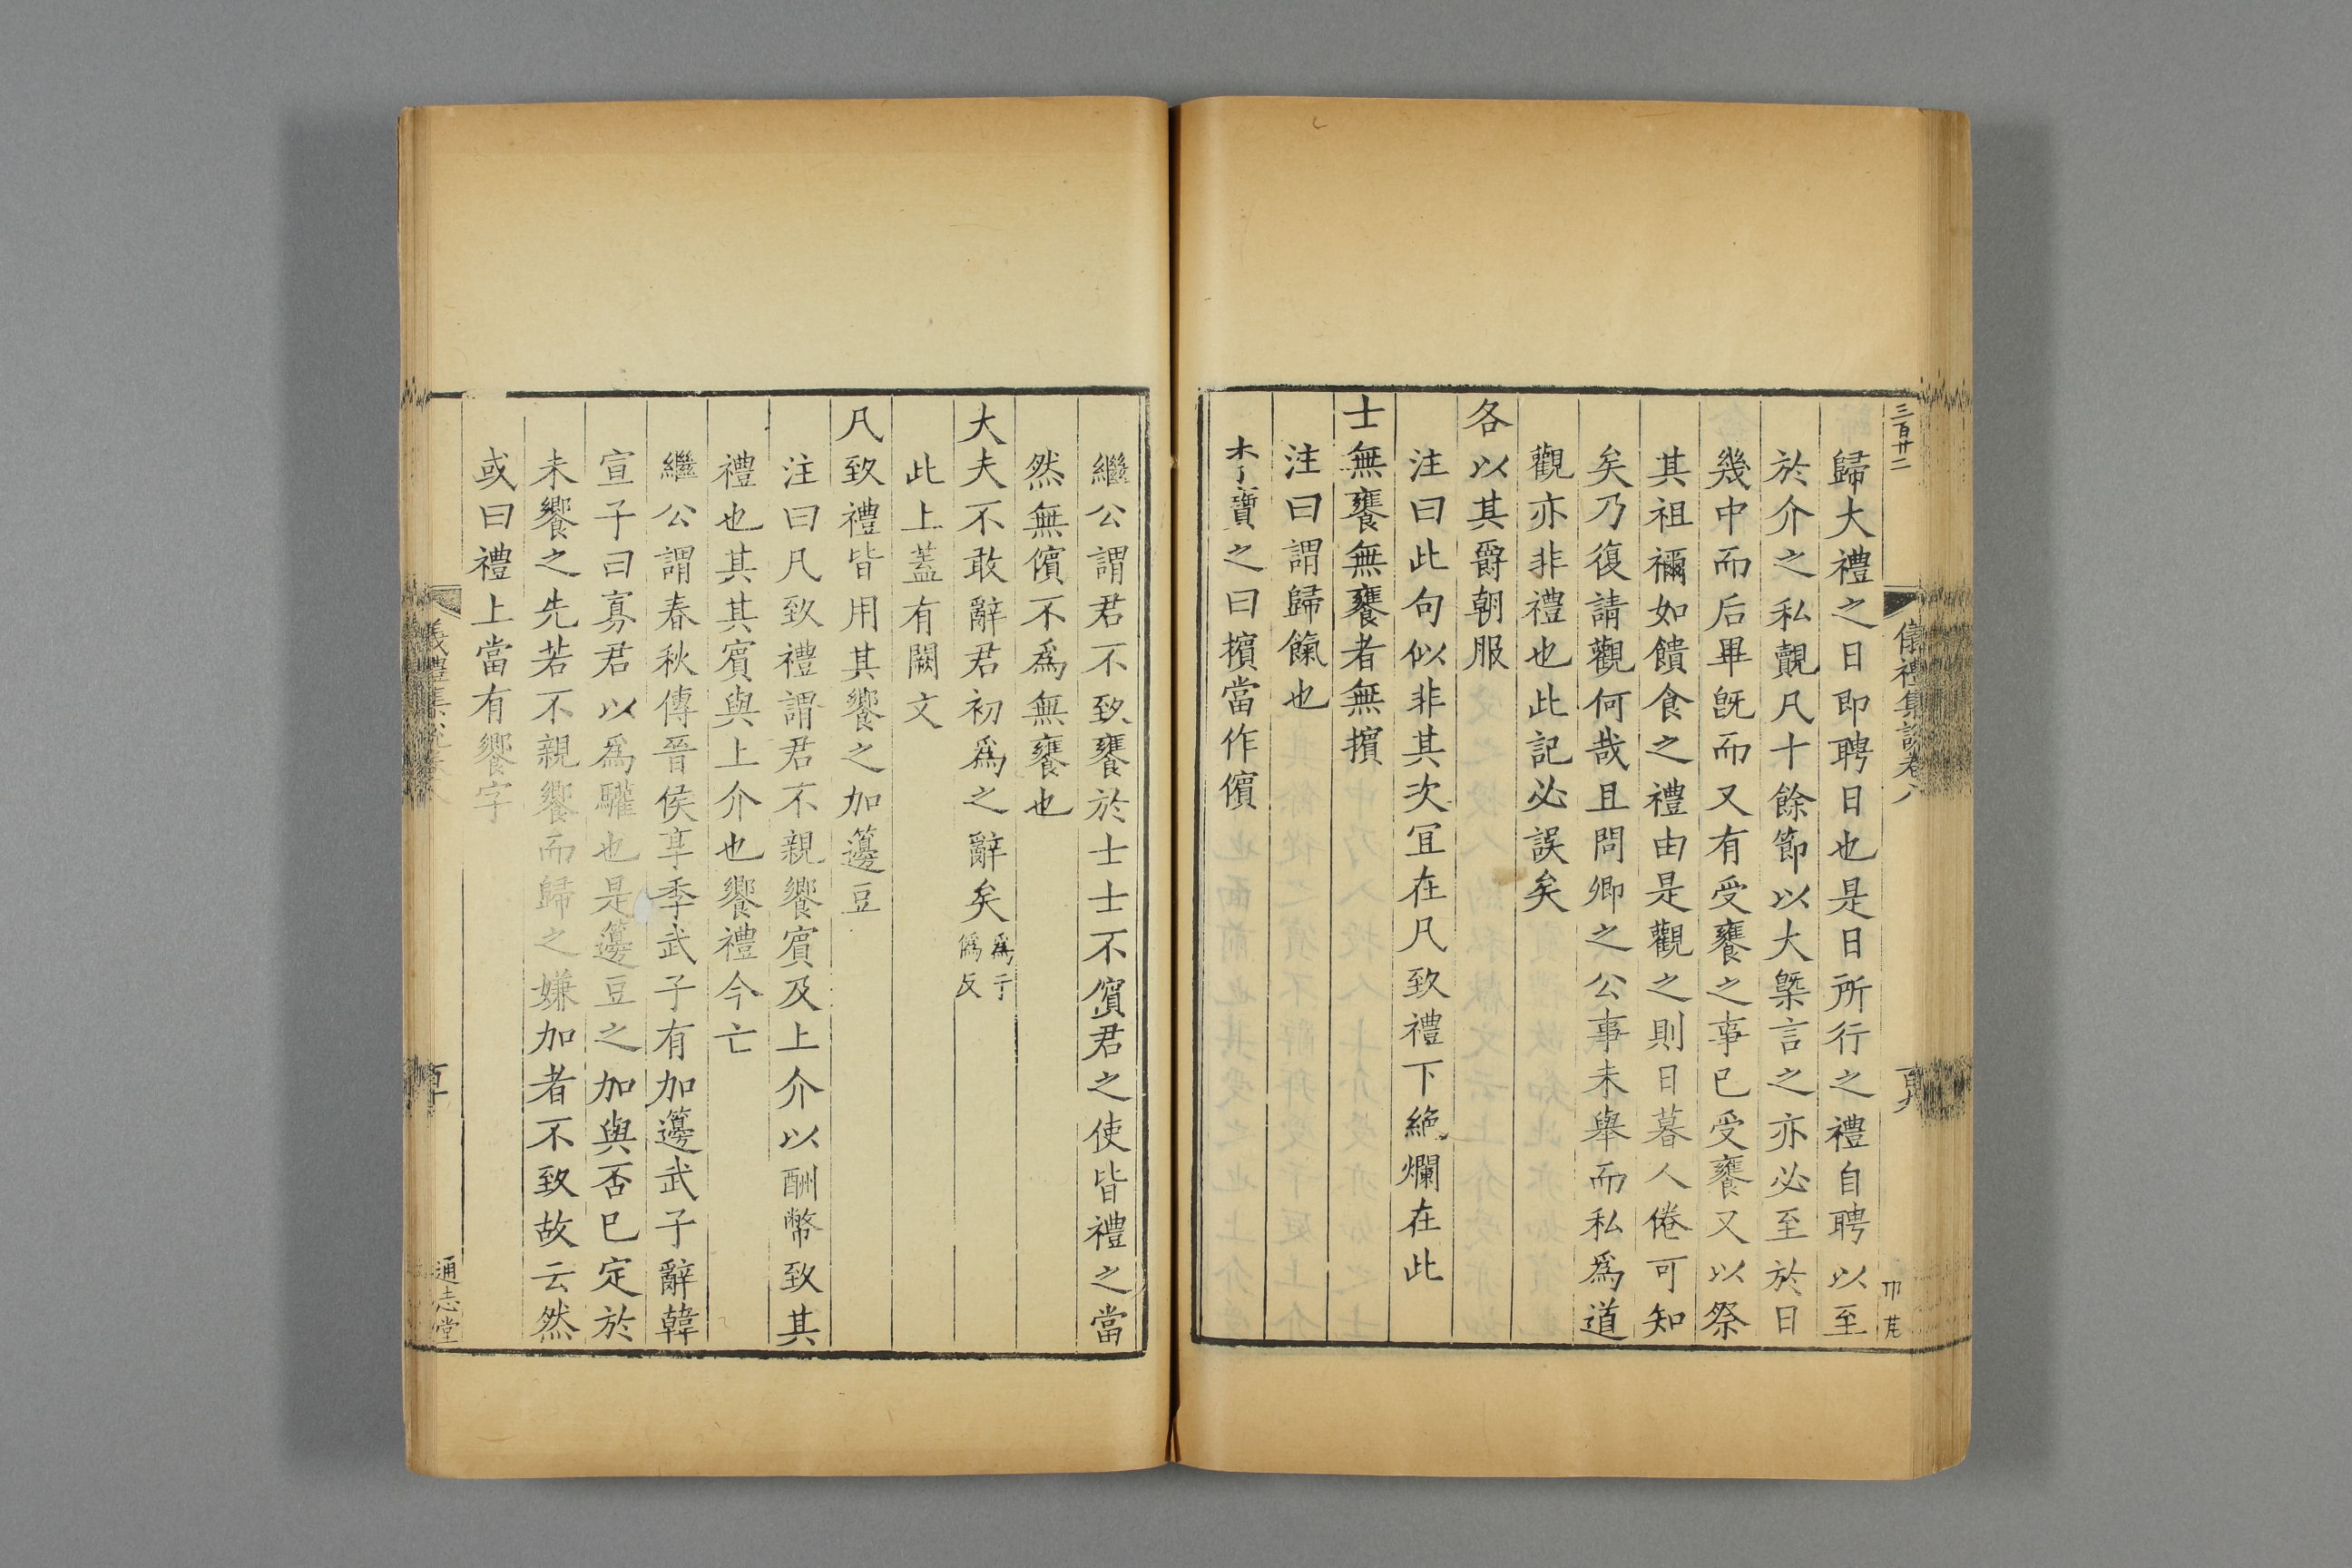 三百廿二
儀禮集說卷八
歸大禮之日即聘日也是日所行之禮自聘以至
於介之私覿凡十餘節以大槩言之亦必至於日
幾中而后畢旣而又有受饔之事已受饔又以祭
其祖禰如饋食之禮由是觀之則日暮人倦可知
矣乃復請觀何哉且問卿之公事未舉而私爲道
觀亦非禮也此記必誤矣
各以其爵朝服
注曰此句似非其次宜在凡致禮下絶爛在此
士無饔無饔者無擯
注曰謂歸餼也
李寶之曰擯當作儐
繼公謂君不致饔於士士不儐君之使皆禮之當
然無儐不爲無饔也
大夫不敢辭君初爲之辭矣爲于僞反
此上蓋有闕文
凡致禮皆用其饗之加籩豆
注曰凡致禮謂君不親饗賓及上介以酬幣致其
禮也其其賓與上介也饗禮今亡
繼公謂春秋傳晉侯享季武子有加籩武子辭韓
宣子曰寡君以爲驩也是籩豆之加與否已定於
未饗之先若不親饗而歸之嫌加者不致故云然
或曰禮上當有饗字
通志堂